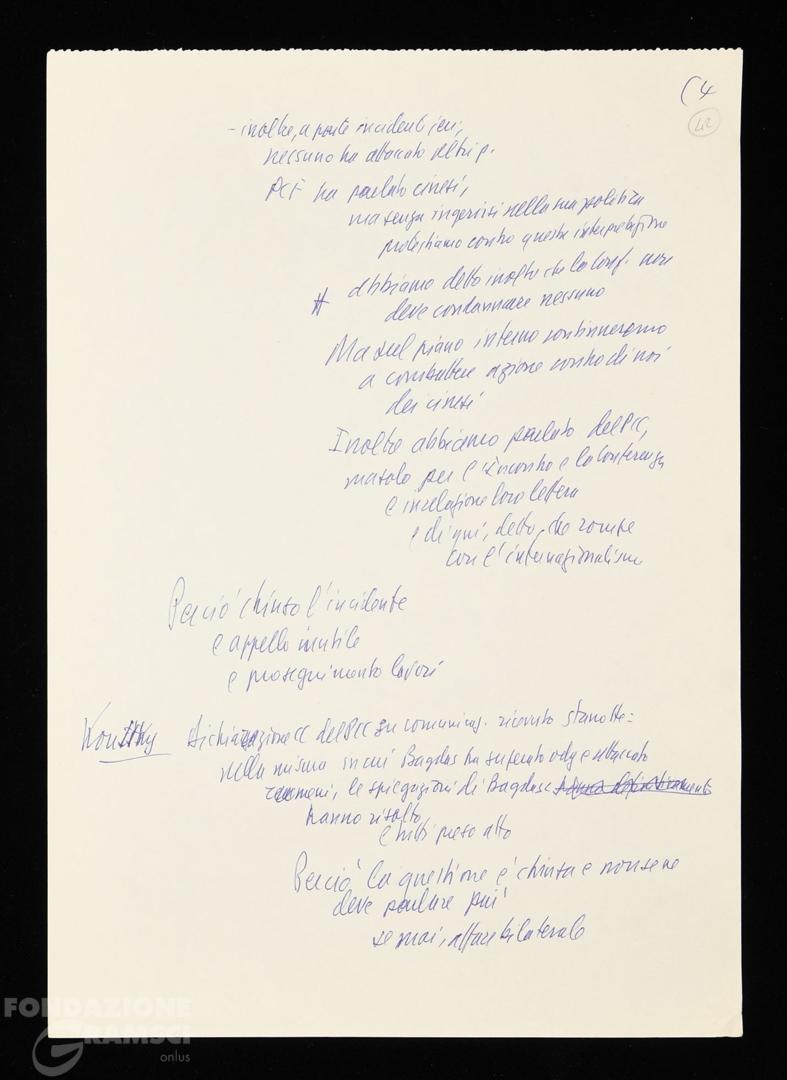 (4
42
- inoltre, a parte incidenti ieri,
nessuno ha attaccato altri p.
PCF ha parlato cinesi,
ma senza ingerirsi nella sua politica
protestiamo contro questa interpretazione
# abbiamo detto inoltre che la Conf. non
deve condannare nessuno
Ma sul piano interno continueremo
a combattere azione contro di noi
dei cinesi
Inoltre abbiamo parlato del PCC,
ma solo per l'incontro e la Conferenza
e in relazione loro lettera
e di qui, detto, che rompe
con l'internazionalismo
Perciò chiuso l'incidente
e appello inutile
e proseguimento lavori
dichiarazione CC del PCC su comunicaz. ricevuta stanotte:
nella misura in cui Bagdas ha superato odg e attaccato
rumeni, le spiegazioni di Bagdasc
hanno risolto
e tutti preso atto
Perciò la questione è chiusa e non se ne
deve parlare più
se mai, affare bilaterale
FONDAZIONE
GRAMSCI
onlus